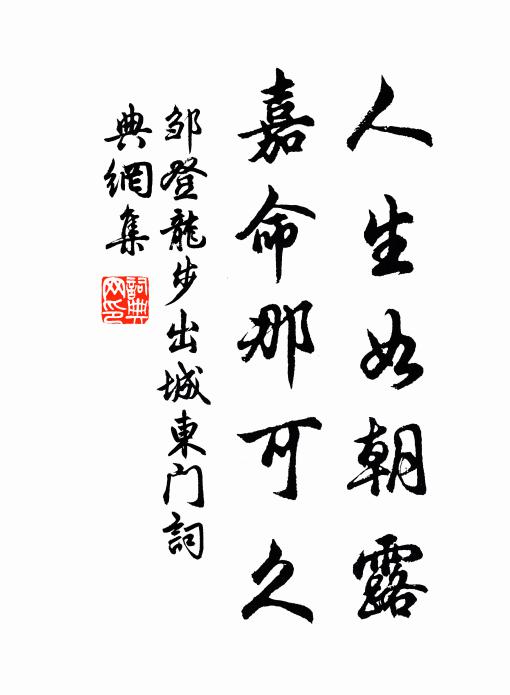 人生如朝露
嘉命那可久
邹登龍步出城東门詞
典網集
詞典
网印